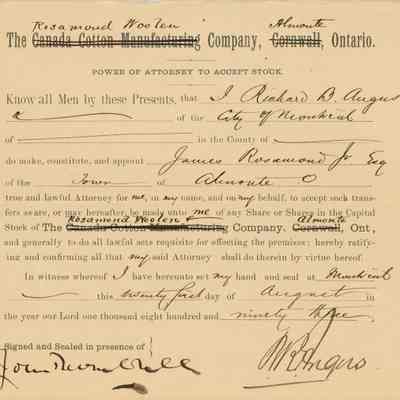 Rosamond Woolen Almonte
The Canada Cotton Manufacturing Company, Cornwall, Ontario.
POWER OF ATTORNEY TO ACCEPT STOCK.
Know all Men by these Presents, that I Richard B. Angus
of the City of Montreal
of in the County of
do make, constitute, and appoint James Rosamond Jr Esq
of the Town of Almonte O
true and lawful Attorney for me, in my name, and on my behalf, to accept such trans-
fers as are, or may hereafter, be made unto me of any Share or Shares in the Capital
Rosamond Woolen Almonte
Stock of The Canada Cotton Manufacturing Company. Cornwall, Ont,
and generally to do all lawful acts requisite for effecting the premises; hereby ratify-
ing and confirming all that my said Attorney shall do therein by virtue hereof.
In witness whereof I have hereunto set my hand and seal at Montreal
this twenty first day of August in
the year our Lord one thousand eight hundred and ninety three.
Signed and Sealed in presence of
R B Angus
John